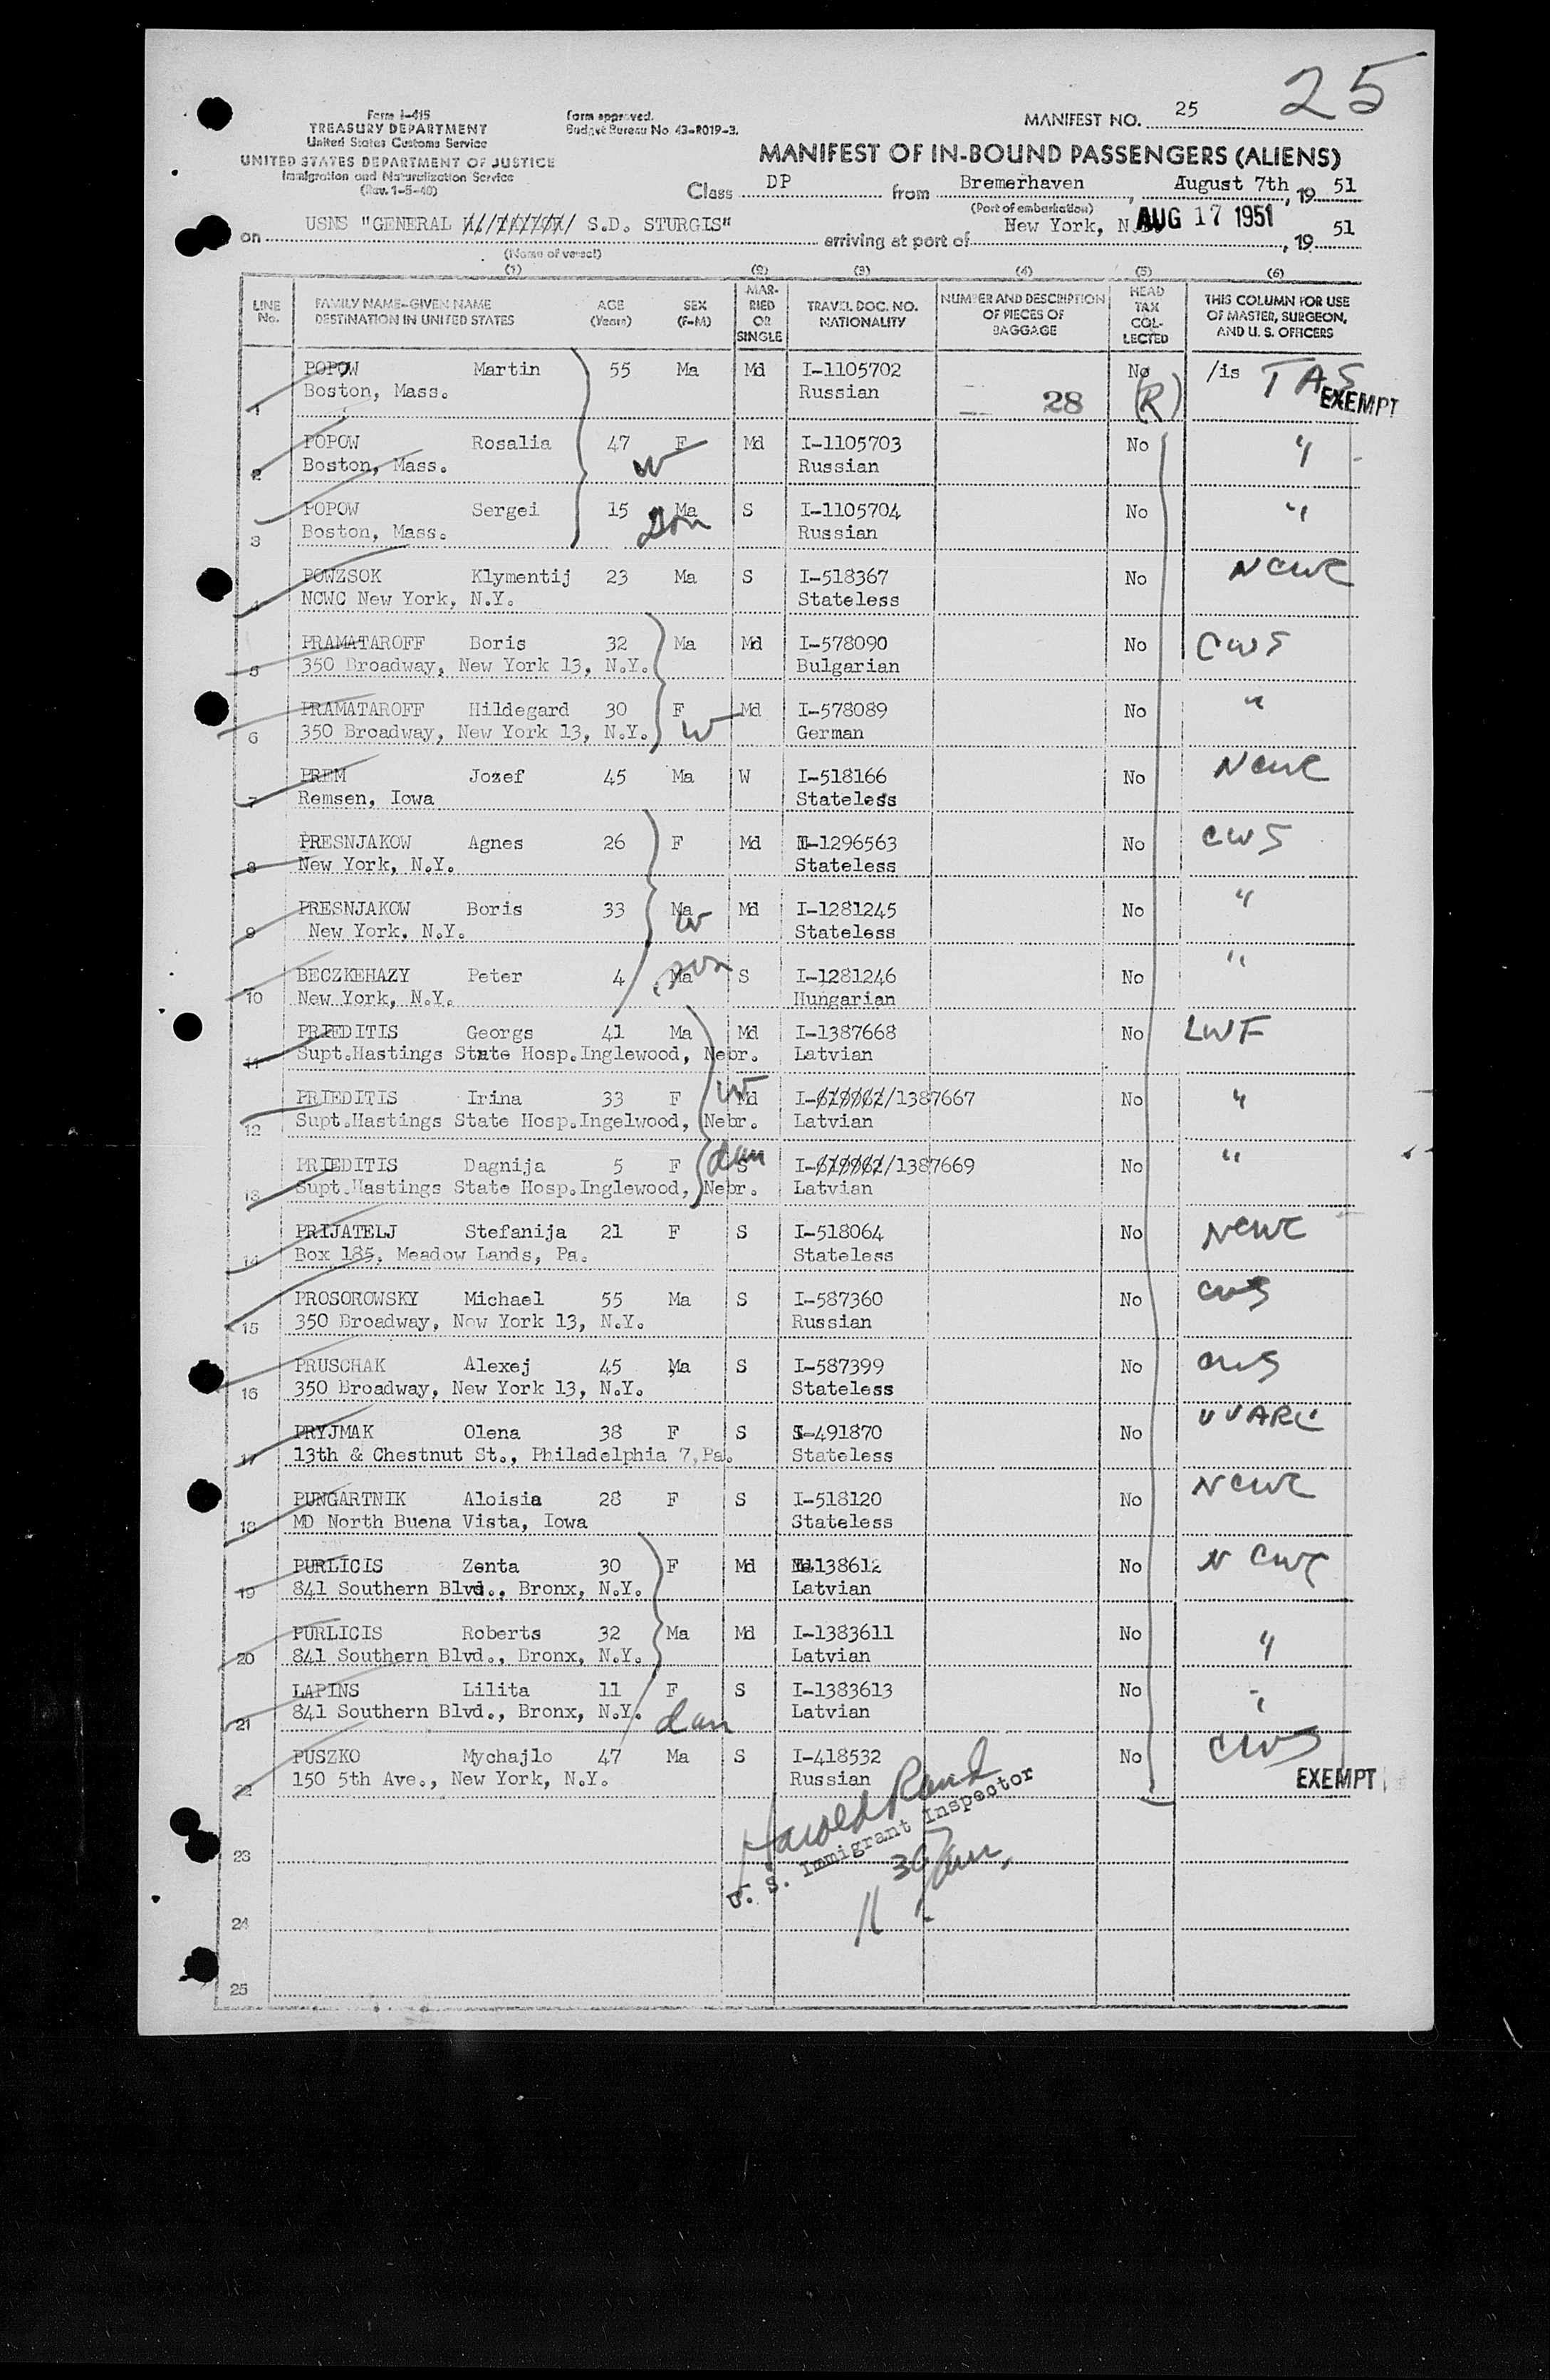 25
Form I-415
TREASURY DEPARTMENT
United States Customs Service
UNITED STATES DEPARTMENT OF JUSTICE
Immigration and Naturalization Service
(Rev. 1-5-48)
Form approved.
Budget Bureau No. 43-R019-3.
MANIFEST NO. 25
MANIFEST OF IN-BOUND PASSENGERS (ALIENS)
Class DP from Bremerhaven, August 7th, 19 51
(Port of embarkation)
on USNS "GENERAL S.D. STURGIS" arriving at port of New York, N. AUG 17 1951, 19 51
(Name of vessel)
(1) (2) (3) (4) (5) (6)
LINE No. FAMILY NAME-GIVEN NAME DESTINATION IN UNITED STATES AGE (Years) SEX (F-M) MARRIED OR SINGLE TRAVEL DOC. NO. NATIONALITY NUMBER AND DESCRIPTION OF PIECES OF BAGGAGE HEAD TAX COLLECTED THIS COLUMN FOR USE OF MASTER, SURGEON, AND U. S. OFFICERS
POPOW Martin 55 Ma Md I-1105702 No /is TAS
1 Boston, Mass. Russian 28 (R) EXEMPT
POPOW Rosalia 47 F Md I-1105703 No "
2 Boston, Mass. W Russian
POPOW Sergei 15 Ma S I-1105704 No "
3 Boston, Mass. Son Russian
POWZSOK Klymentij 23 Ma S I-518367 No NCWC
4 NCWC New York, N.Y. Stateless
PRAMATAROFF Boris 32 Ma Md I-578090 No CWS
5 350 Broadway, New York 13, N.Y. Bulgarian
PRAMATAROFF Hildegard 30 F Md I-578089 No "
6 350 Broadway, New York 13, N.Y. W German
PREM Jozef 45 Ma W I-518166 No NCWC
7 Remsen, Iowa Stateless
PRESNJAKOW Agnes 26 F Md I-1296563 No CWS
8 New York, N.Y. Stateless
PRESNJAKOW Boris 33 Ma Md I-1281245 No "
9 New York. N.Y. W Stateless
BECZKEHAZY Peter 4 Ma son S I-1281246 No "
10 New York, N.Y. Hungarian
PRIEDITIS Georgs 41 Ma Md I-1387668 No LWF
11 Supt.Hastings State Hosp.Inglewood, Nebr. Latvian
PRIEDITIS Irina 33 F W Md I-619962/1387667 No "
12 Supt.Hastings State Hosp.Ingelwood, Nebr. Latvian
PRIEDITIS Dagnija 5 F dau S I-619962/1387669 No "
13 Supt.Hastings State Hosp.Inglewood, Nebr. Latvian
PRIJATELJ Stefanija 21 F S I-518064 No NCWC
14 Box 185, Meadow Lands, Pa. Stateless
PROSOROWSKY Michael 55 Ma S I-587360 No CWS
15 350 Broadway, New York 13, N.Y. Russian
PRUSCHAK Alexej 45 Ma S I-587399 No CWS
16 350 Broadway, New York 13, N.Y. Stateless
PRYJMAK Olena 38 F S I-491870 No UUARC
17 13th & Chestnut St., Philadelphia 7,Pa. Stateless
PUNGARTNIK Aloisia 28 F S I-518120 No NCWC
18 MD North Buena Vista, Iowa Stateless
PURLICIS Zenta 30 F Md 138612 No NCWC
19 841 Southern Blvd., Bronx, N.Y. Latvian
PURLICIS Roberts 32 Ma Md I-1383611 No "
20 841 Southern Blvd., Bronx, N.Y. Latvian
LAPINS Lilita 11 F S I-1383613 No "
21 841 Southern Blvd., Bronx, N.Y. dau Latvian
PUSZKO Mychajlo 47 Ma S I-418532 No CWS
22 150 5th Ave., New York, N.Y. Russian EXEMPT
Harold Rand
U. S. Immigrant Inspector
23
11 30
24
25